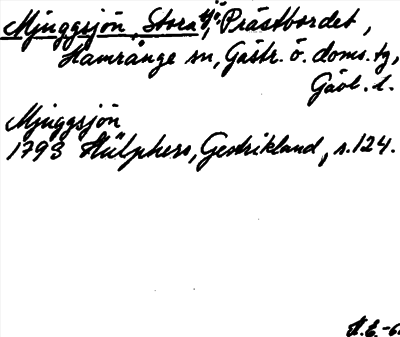 Mjuggsjön, Stora, Prästbordet,
Hamrånge sn, Gästr. ö. doms. tg,
Gävl. l.
Mjuggsjön
1793 Hülphers, Gestrikland, s. 124.
H.E. -6